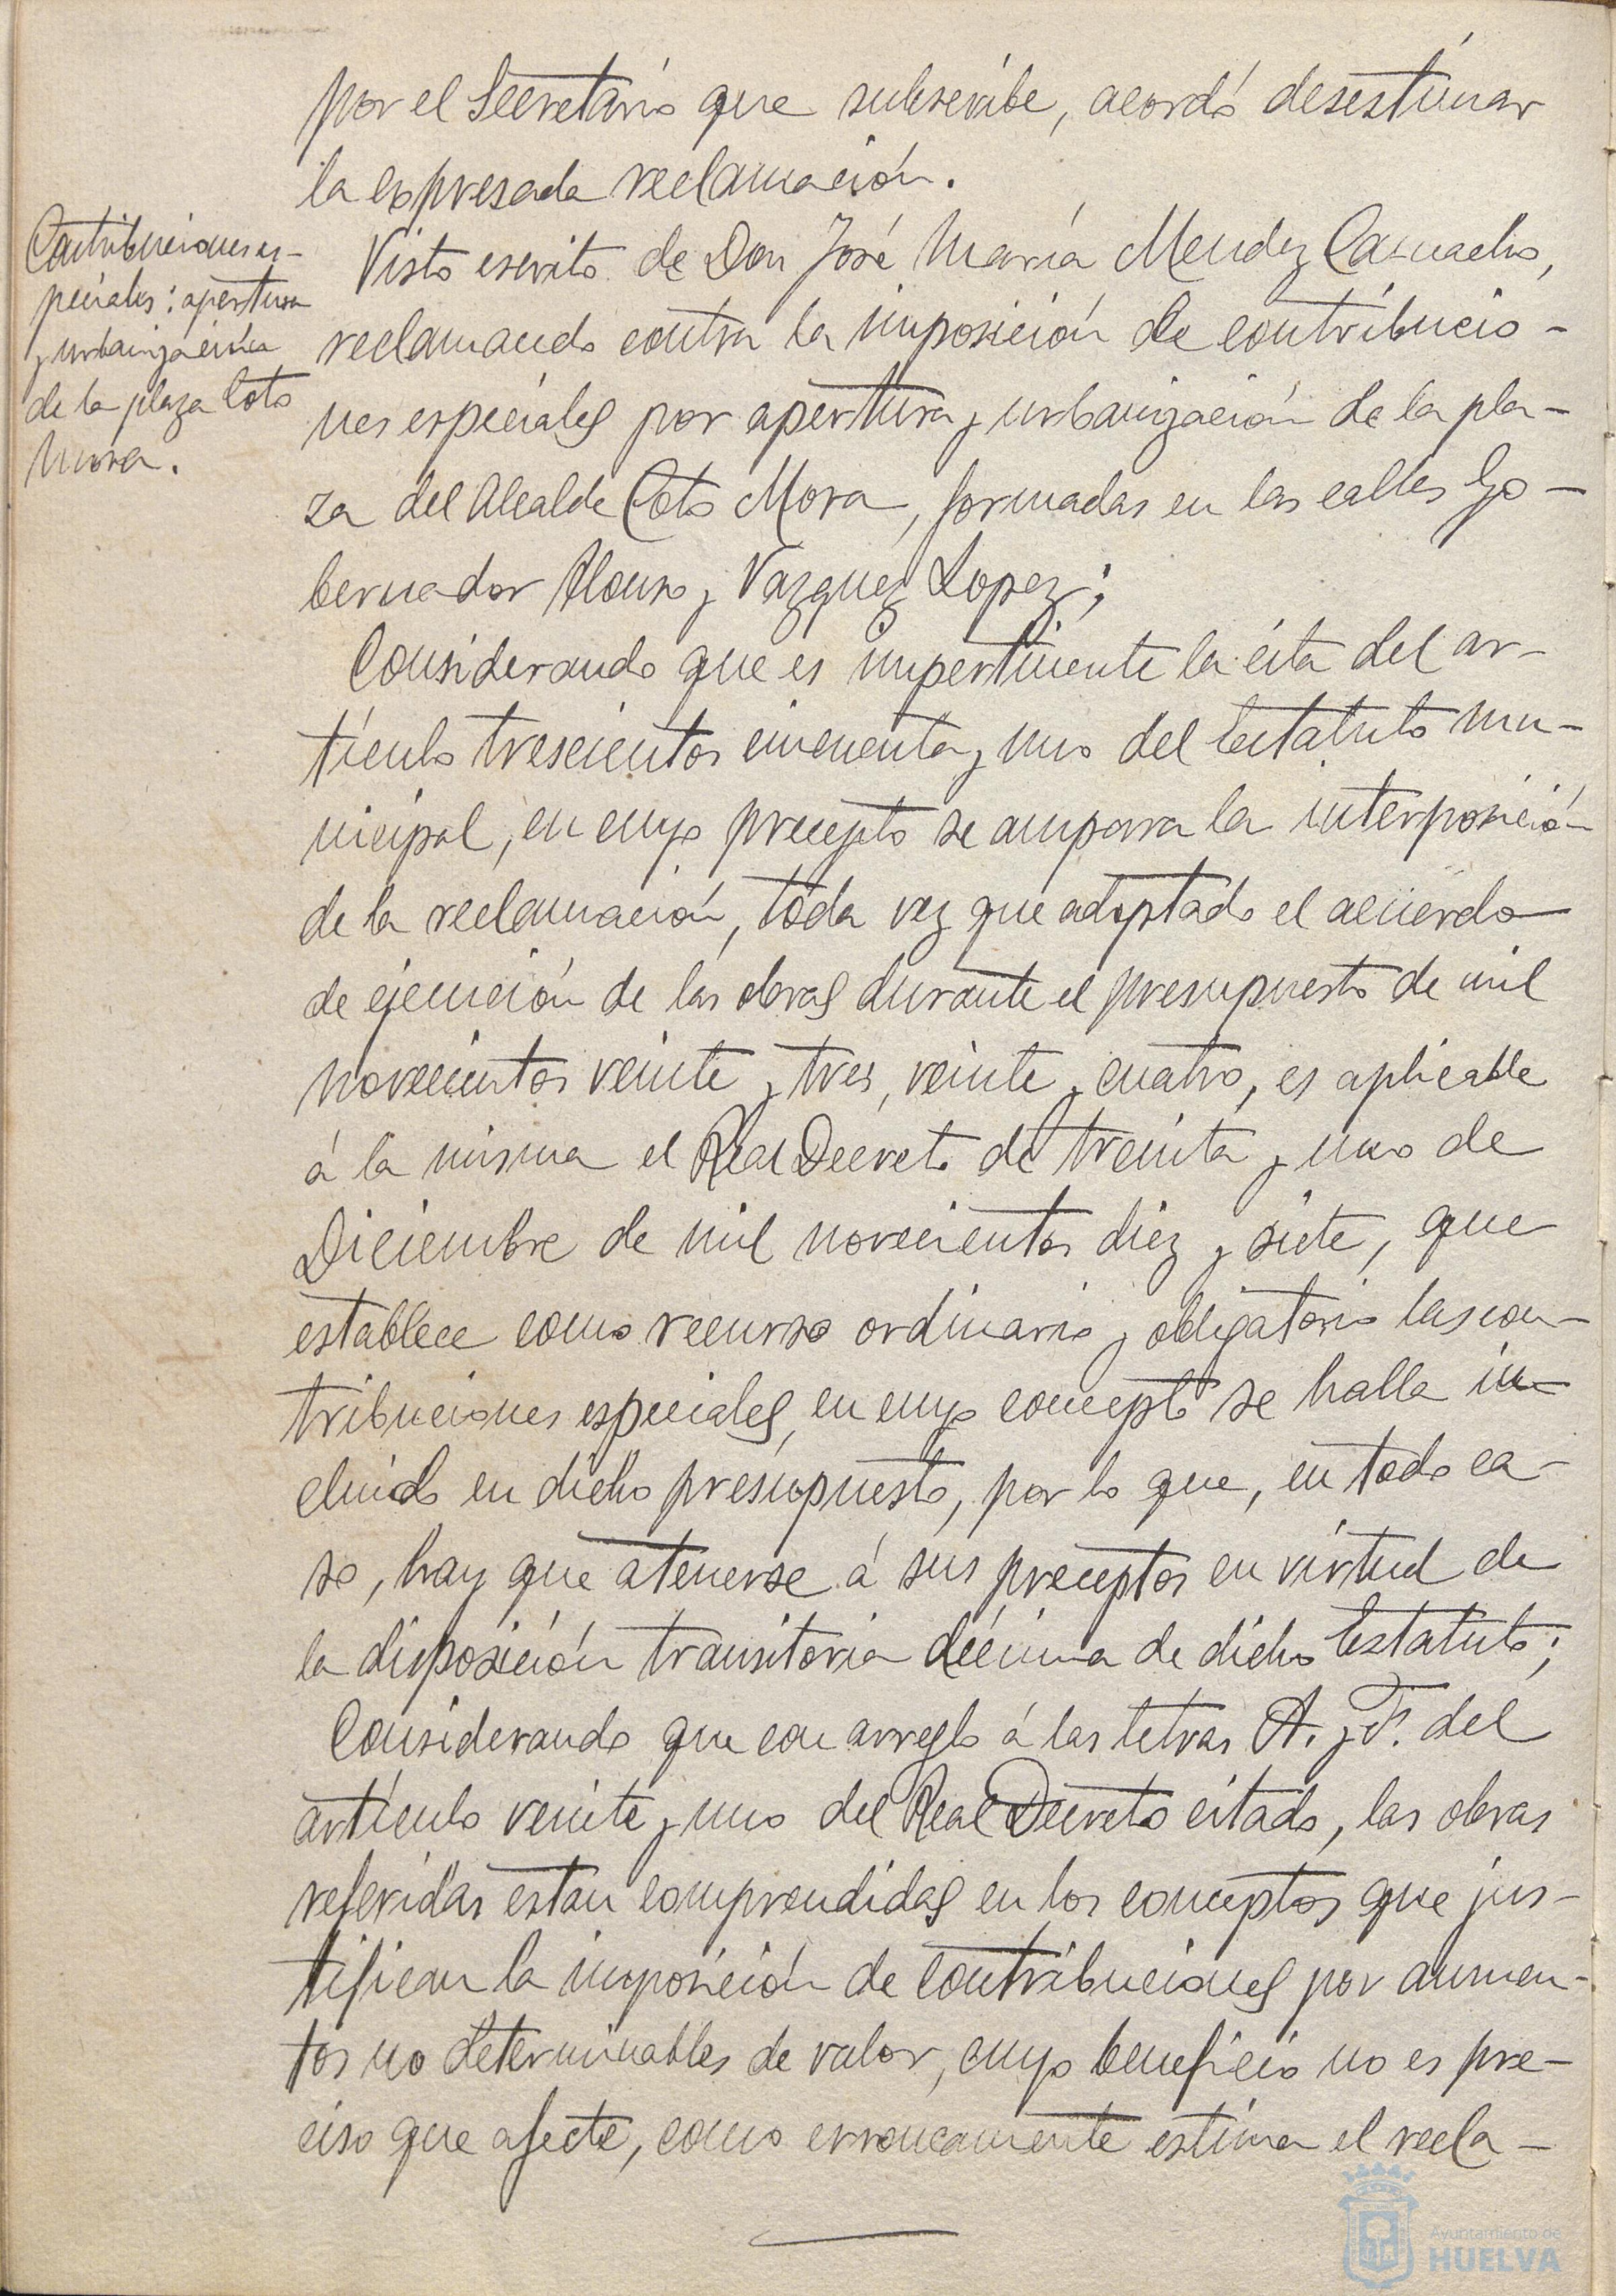 por el Secretario que subscribe, acordó desestimar
la expresada reclamación.
Contribuciones es-
peciales: apertura
y urbanización
de la plaza Coto
Mora.
Visto escrito de Don José María Mendez Camacho,
reclamando contra la imposición de contribucio-
nes especiales por apertura y urbanización de la pla-
za del Alcalde Coto Mora, formadas en las calles Go-
bernador Alonso y Vazquez Lopez;
Considerando que es impertinente la cita del ar-
tículo trescientos cincuenta y uno del Estatuto mu-
nicipal, en cuyo precepto se ampara la interposición
de la reclamación, toda vez que adoptado el acuerdo
de ejecución de las obras durante el presupuesto de mil
novecientos veinte y tres, veinte y cuatro, es aplicable
á la misma el Real Decreto de treinta y uno de
Diciembre de mil novecientos diez y siete, que
establece como recurso ordinario y obligatorio las con-
tribuciones especiales, en cuyo concepto se halla in-
cluido en dicho presupuesto, por lo que, en todo ca-
so, hay que atenerse á sus preceptos en virtud de
la disposición transitoria décima de dicho Estatuto;
Considerando que con arreglo á las letras A. y F. del
artículo veinte y uno del Real Decreto citado, las obras
referidas estan comprendidas en los conceptos que jus-
tifican la imposición de contribuciones por aumen-
tos no determinables de valor, cuyo beneficio no es pre-
ciso que afecte, como erroneamente estima el recla-
Ayuntamiento de
HUELVA